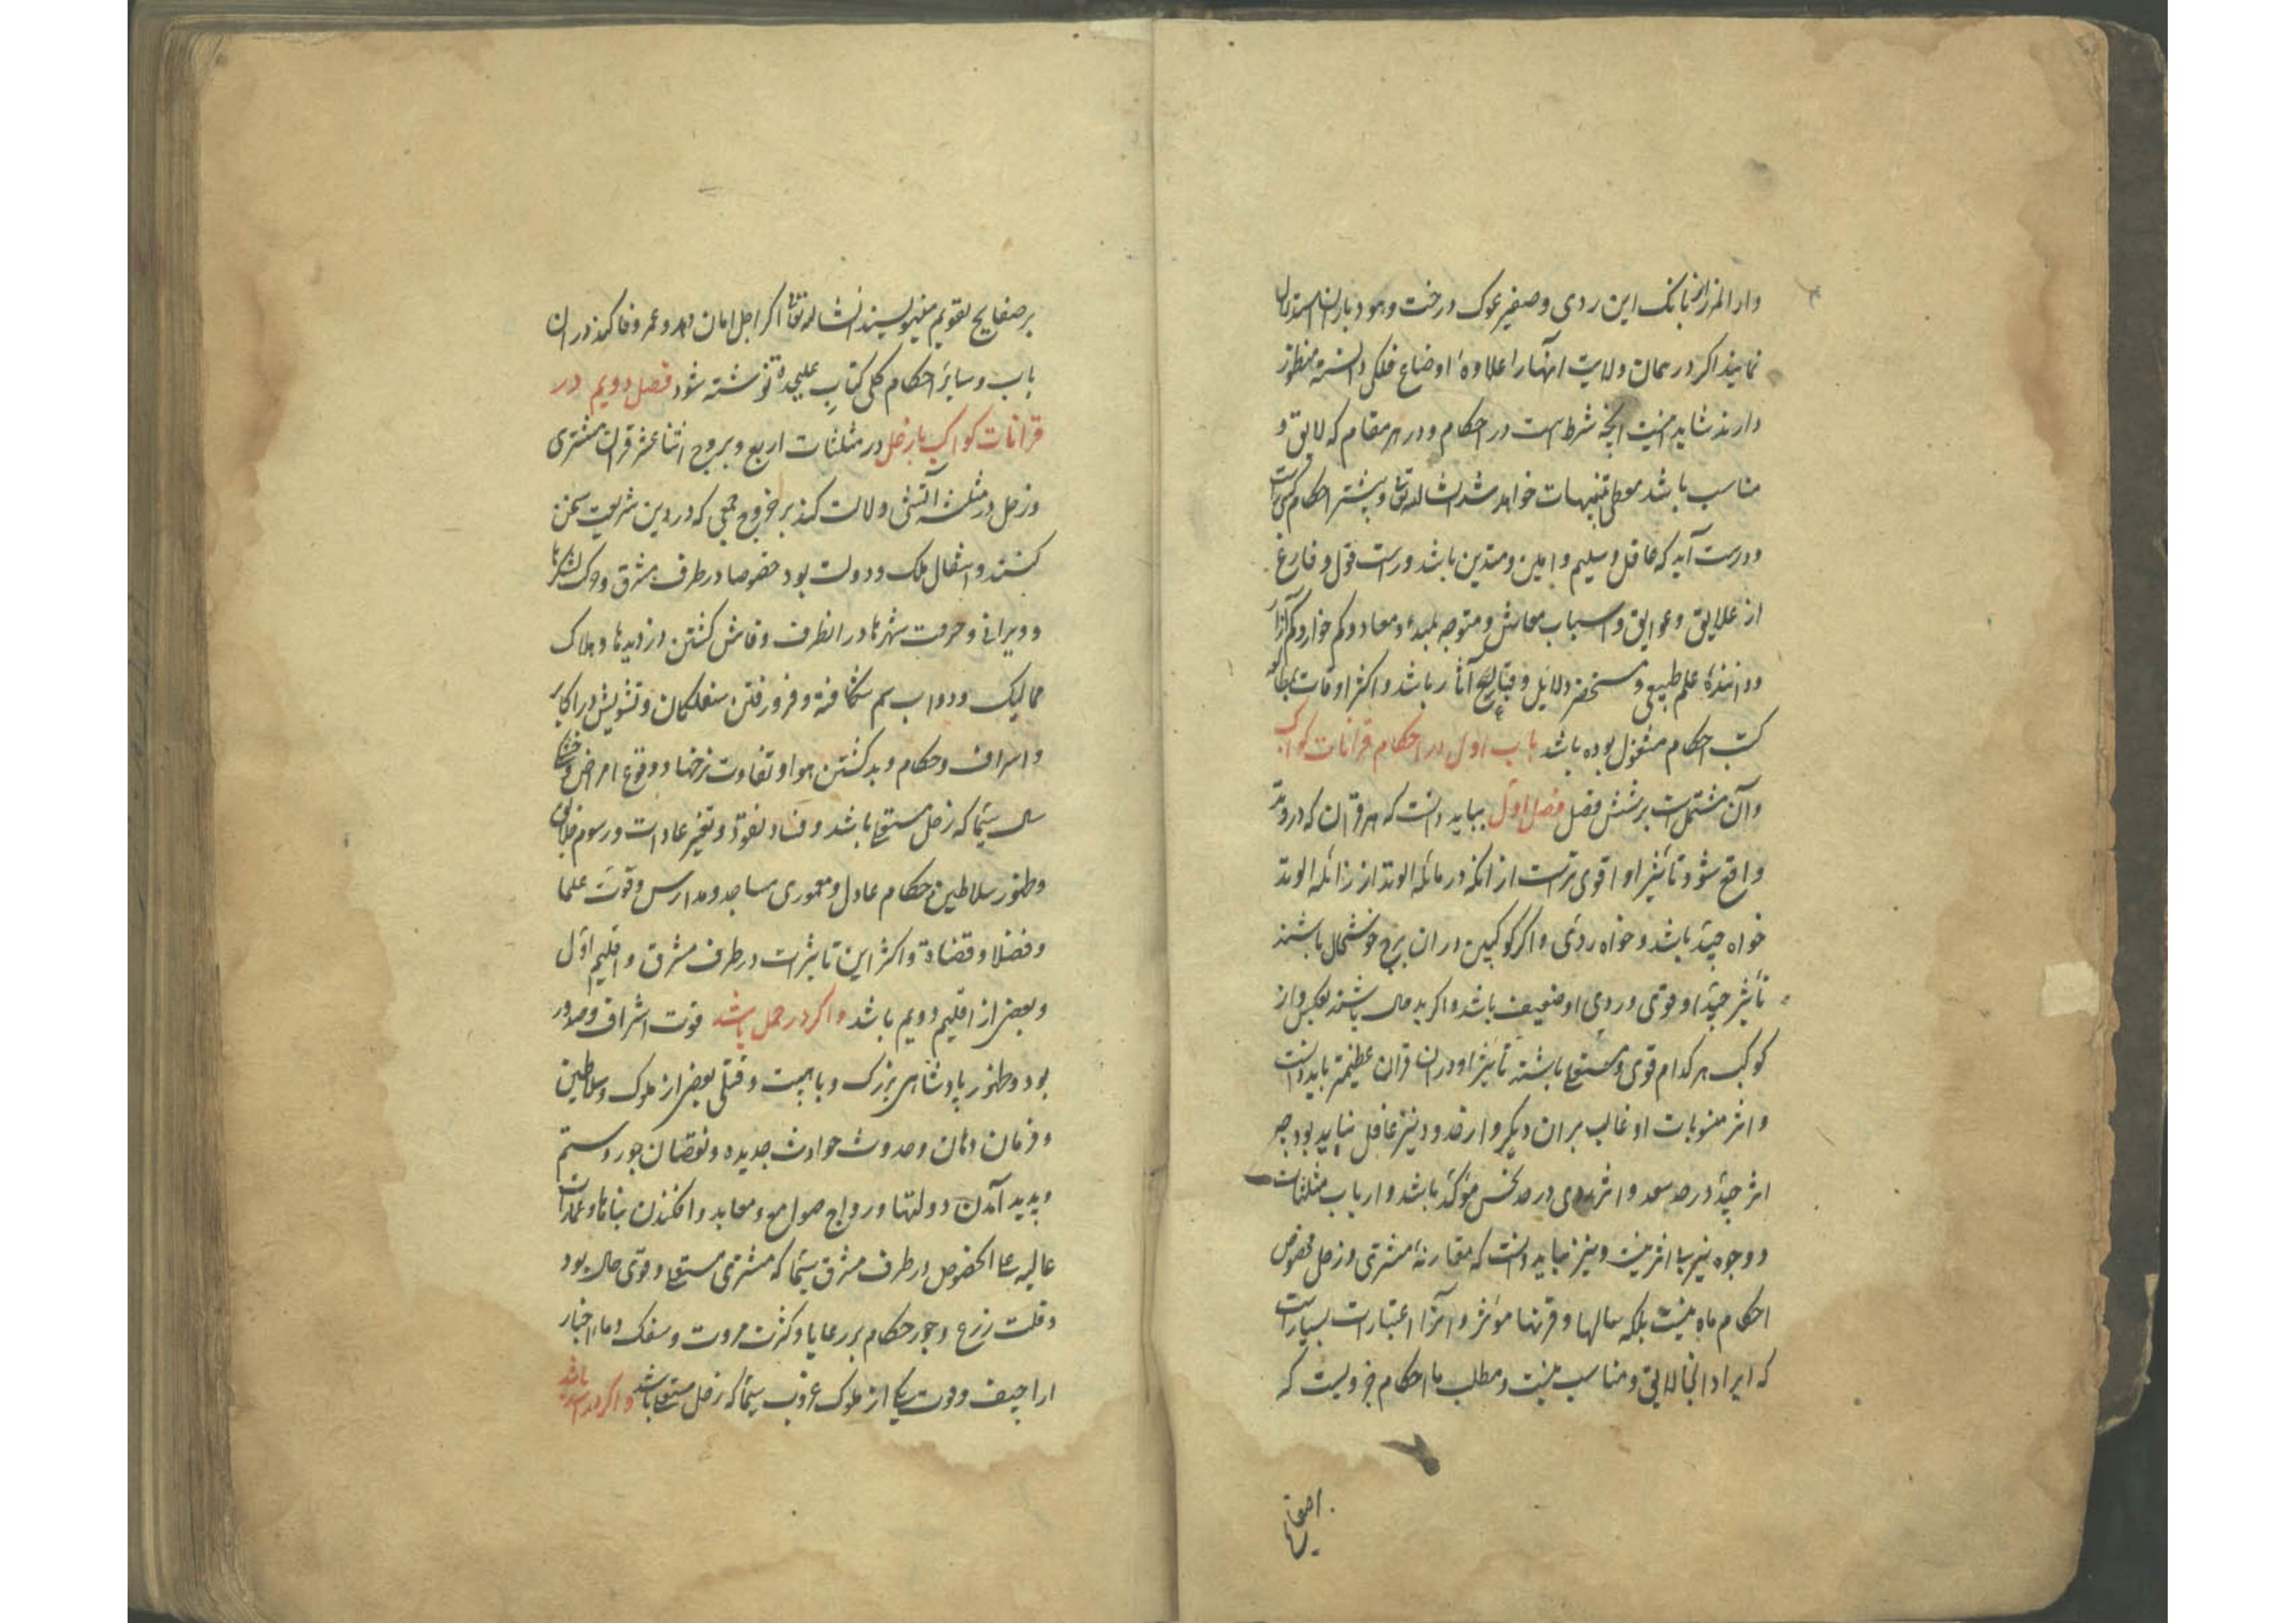 و دار المرز از بانک ابن ردی و صفیر غوک درخت و هود باران استدلال
نمایند اکر در همان ولایت آنها را علاوهٔ اوضاع فلکی دانسته منظور
دارند شاید اینست انچه شرط است در احکام و در هر مقام که لایق و
مناسب باشد معطی تنبیهات خواهد شد انشا الله تعا و بیشتر احکام کسی راست
و درست آید که عاقل و سلیم و امین و متدین باشد و راست قول و فارغ
از علایق و عوایق و اسباب معاش و متوجه بمبدء و معاد و کم خوار و کم آزار
و دانندهٔ علم طبیعی و مستحضر دلایل و آثار باشد و اکثر اوقات بمطالعه
کتب احکام مشغول بوده باشد باب اول در احکام قرانات کواکب
و آن مشتمل است بر شش فصل فصل اول بباید دانست که هر قران که در وتد
واقع شود تأثیر او اقوی ترست از انکه در مائله الوتد از زائله الوتد
خواه جیّد باشد و خواه ردئ و اکر کوکبین در ان برج خوشحال باشند
تأثیر جیّد او قوی و ردی او ضعیف باشد و اکر بد حال باشند بعکس و از
کوکب هر کدام قوی و مستعلی باشد تأثیر او در ان قران عظیمتر باید دانست
و اثر منسوبات او غالب بر ان دیکر و از حدود نیز غافل نباید بود چه
اثر جیّد در حد سعد و اثر ردی در حد نحس مؤکد باشد و ارباب مثلثات
و وجوه نیز بی اثر نیست و نیز بباید دانست که مقارنهٔ مشتری و زحل مخصوص
احکام ماه نیست بلکه سالها و قرنها مؤثر و آنرا اعتبارات بسیارست
که ایراد انجا لایق و مناسب نیست و مطلب ما احکام جزویست که
بر صفایح تقویم مینویسند انشا الله تعا اکر اجل امان دهد و عمر وفا کند در ان
باب و سایر احکام کلی کتاب علیحده نوشته شود فصل دویم در
قرانات کواکب با زحل در مثلثات اربع و بروج اثنا عشر قران مشتری
و زحل در مثلثه آتشی دلالت کند بر خروج جمعی که در دین شریعت سخن
کنند و انتقال ملک و دولت بود خصوصا در طرف مشرق و حرکت لشکرها
و ویرانی و حرمت شهرها در انطرف و فاش کشتن دزدیها و هلاک
ممالیک و دواب سم شکافته و فرو رفتن سفلکان و تشویش در اکابر
و اشراف و حکام و بد کشتن هوا و تفاوت نرخها و وقوع امراض و خشک
سال سیّما که زحل مستعلی باشد و فساد نقود و تغیر عادات و رسوم خلایق
و ظهور سلاطین و حکام عادل و معموری مساجد و مدارس و قوّت علما
و فضلا و قضاة و اکثر این تاثیرات در طرف مشرق و اقلیم اوّل
و بعضی از اقلیم دویم باشد و اکر در حمل باشد فوت اشراف و صدور
بود و ظهور پادشاهی بزرک و با هیبت و قتل بعضی از ملوک و سلاطین
و فرمان دهان و حدوث حوادث جدیده و نقصان جور و ستم
و پدید آمدن دولتها و رواج صوامع و معابد و افکندن بناها و عمارات
عالیه علی الخصوص در طرف مشرق سیّما که مشتری مستعلی و قوی حال بود
و قلت زرع و جور حکام بر رعایا و کثرت مروت و سفک دماء و اخبار
اراجیف و موت یکی از ملوک عرب سیّما که زحل مستعلی باشد و اکر در اسد باشد